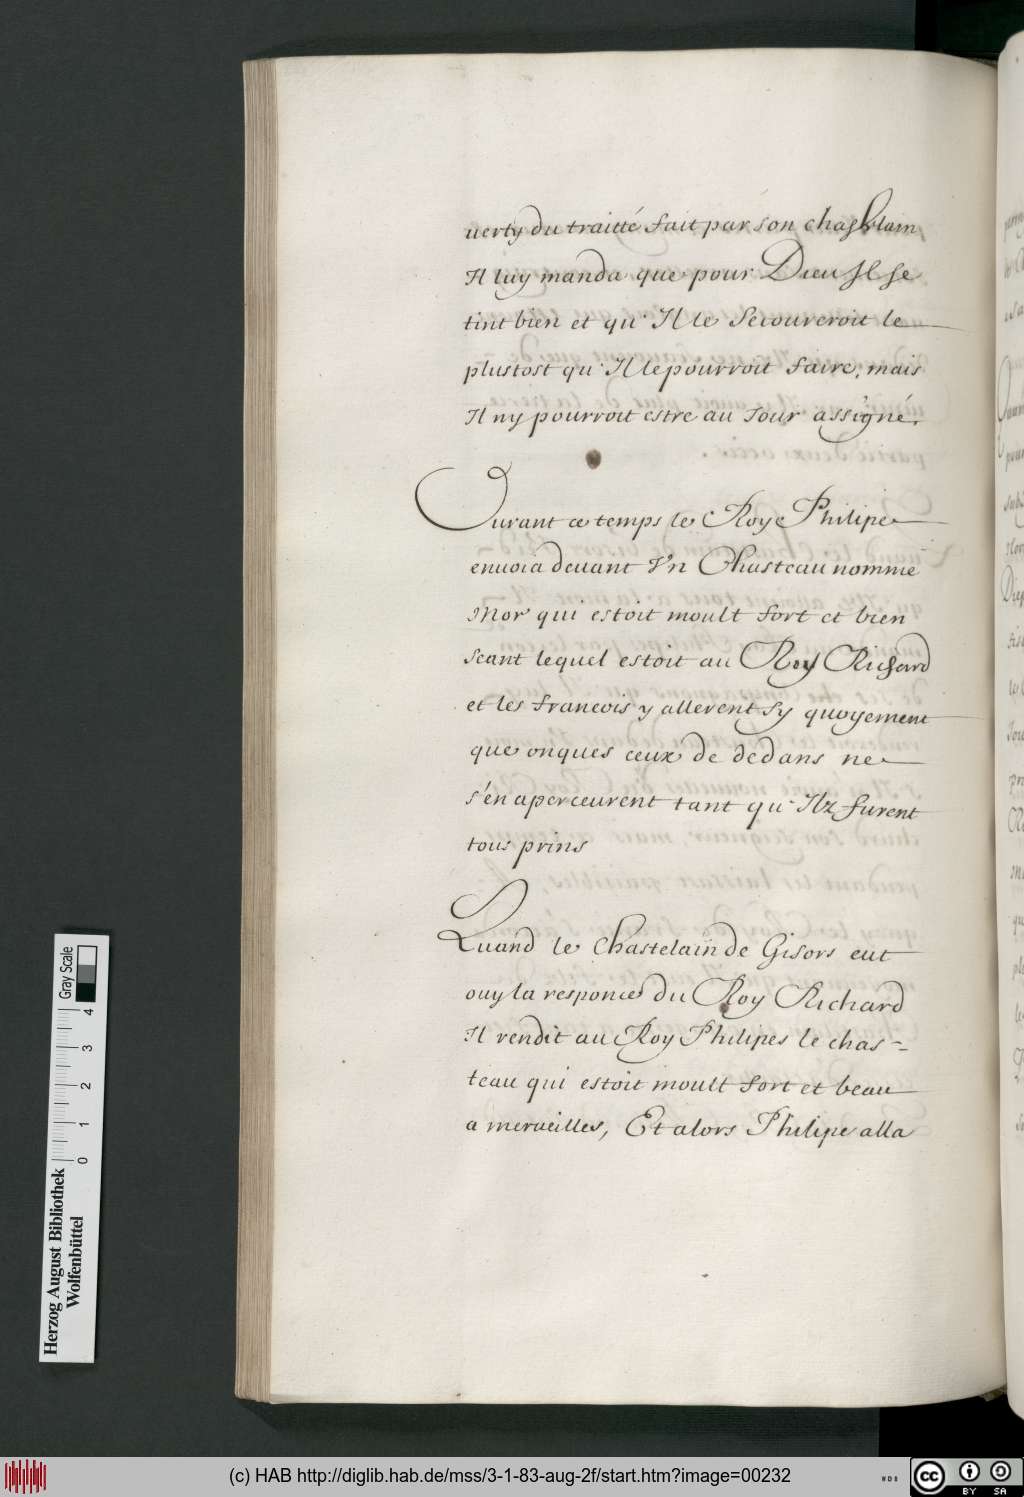 uerty du traitté fait par son chastelain
Il luy manda que pour Dieu Il se
tint bien et qu'Il le Secoureroit le
plustost qu'Il le pourroit faire, mais
Il ny pourroit estre au Jour assigné.
Durant ce temps le Roye Philipe
enuoia deuant Vn Chasteau nommé
Mor qui estoit moult fort et bien
seant lequel estoit au Roy Richard
et les francois y allerent sy quoyement
que onques ceux de dedans ne
s'en aperceurent tant qu'Ilz furent
tous prins
Quand le Chastelain de Gisors eut
ouy la responce du Roy Richard
Il rendit au Roy Philipes le chas=
teau qui estoit moult fort et beau
a merueilles, Et alors Philipe alla
Gray Scale
4
3
2
1
0
Herzog August Bibliothek
Wolfenbüttel
(c) HAB http://diglib.hab.de/mss/3-1-83-aug-2f/start.htm?image=00232
WDB
cc
BY SA